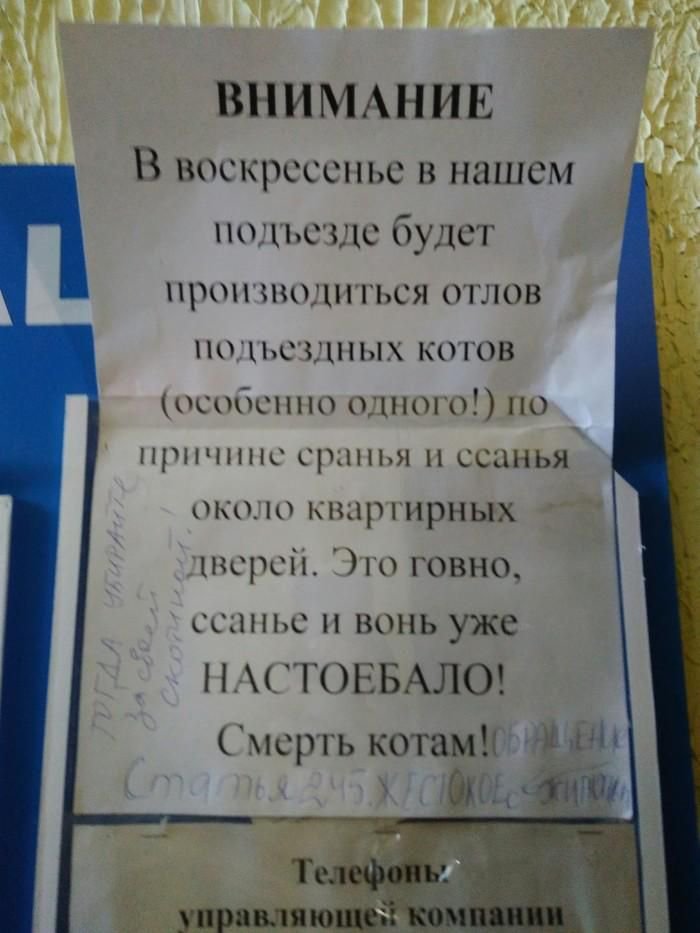 ВНИМАНИЕ
В воскресенье в нашем
подъезде будет
производиться отлов
подъездных котов
(особенно одного!) по
причине сранья и ссанья
около квартирных
дверей. Это говно,
ссанье и вонь уже
НАСТОЕБАЛО!
Смерть котам!
ТОГДА УБИРАЙТЕ
за своей
скотиной!
ОБРАЩЕНИЕ
Статья 245. ЖЕСТОКОЕ с
Телефоны
управляющей компании